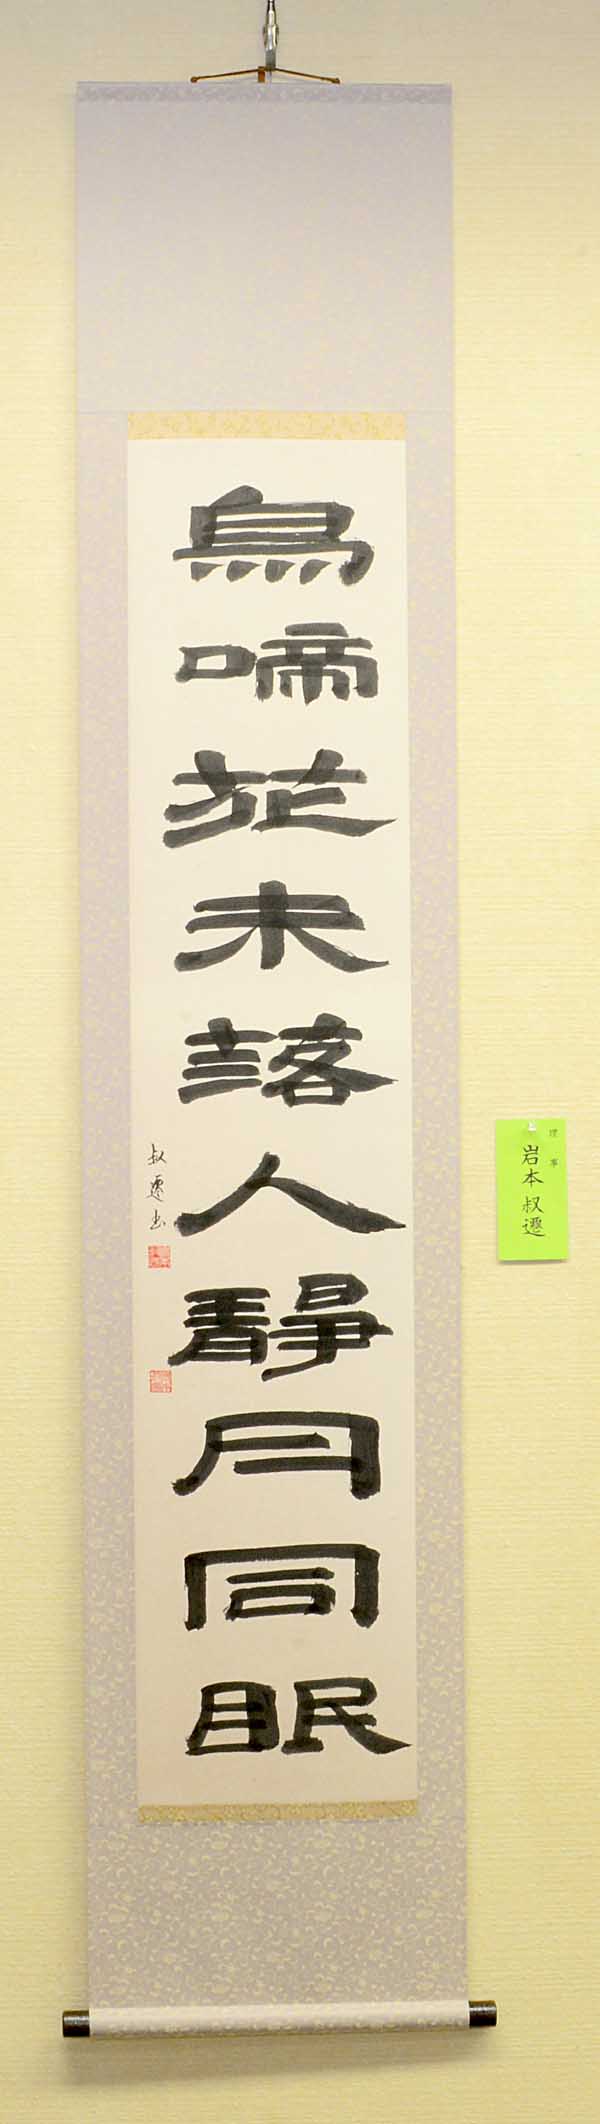 鳥啼花未落人靜月同眠
叔遷書
理事
岩本叔遷